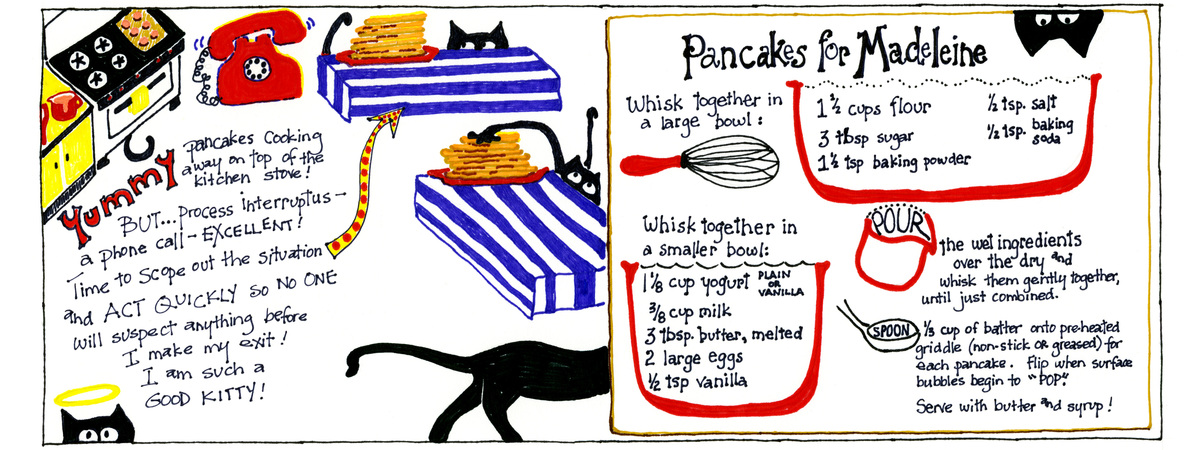 Yummy
pancakes cooking
away on top of the
kitchen stove!
BUT... process interruptus –
a phone call – EXCELLENT!
Time to scope out the situation
and ACT QUICKLY so NO ONE
will suspect anything before
I make my exit!
I am such a
GOOD KITTY!
Pancakes for Madeleine
Whisk together in
a large bowl:
1 1/2 cups flour
3 tbsp sugar
1 1/2 tsp baking powder
1/2 tsp. salt
1/2 tsp. baking
soda
Whisk together in
a smaller bowl:
1 1/8 cup yogurt PLAIN
OR
VANILLA
3/8 cup milk
3 tbsp. butter, melted
2 large eggs
1/2 tsp vanilla
POUR
the wet ingredients
over the dry and
whisk them gently together,
until just combined.
SPOON 1/3 cup of batter onto pre-heated
griddle (non-stick OR greased) for
each pancake. Flip when surface
bubbles begin to "POP."
Serve with butter and syrup!